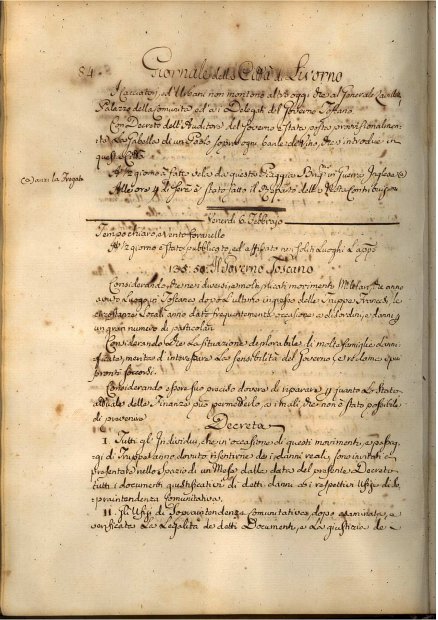 84.
Giornale della Città di Livorno
I Cacciatori, ed Urbani non montono altro oggi che al Generale
Palazzo della Comunità ed ai Delegati del Governo Toscano
Con Decreto dell'Auditore del Governo è stata posta provvisionalmen-
te la Gabella di un Paolo sopra ogni barile di Vino, che s'introduce in
questa Città
A giorno à fatto vela da questa Spiaggia Brig. in Guerra Inglese
(a) anzi la Fregata
Alle ore 4 di sera è stato fatto il
Venerdì 6. Febbrajo
Tempo chiaro, e vento
A giorno è stato pubblicato, ed affisso nei soliti Luoghi L'appo
Il Governo Toscano
Considerando, che nei diversi, e moltiplicati movimenti Militari, che anno
avuto luogo in Toscana dopo l'ultimo ingresso delle Truppe Francesi, le
circostanze Locali anno dato frequentemente occasione a disordini, e danni
un gran numero di particolari
Considerando che la situazione deplorabile di molte famiglie danni-
ficate, merita d'interessare la sensibilità del Governo, e reclama i più
pronti soccorsi.
Considerando esser suo preciso dovere di riparare per quanto lo stato
attuale della Finanze può permetterlo, ai mali che non è stato possibile
di prevenire
Decreta
I. Tutti gli Individui, che in occasione di questi movimenti, e passag-
gi di Truppe anno dei danni reali, sono invitati
presentare nello spazio di un Mese dalla data del presente Decreto
tutti i documenti giustificativi di detti danni ai respettivi Ufizi di So-
praintendenza Comunitativa.
II. Gli Ufizi di Sopraintendenza Comunitativa, dopo esaminata, e
verificata la Legalità de detti Documenti, e la giustizia de-